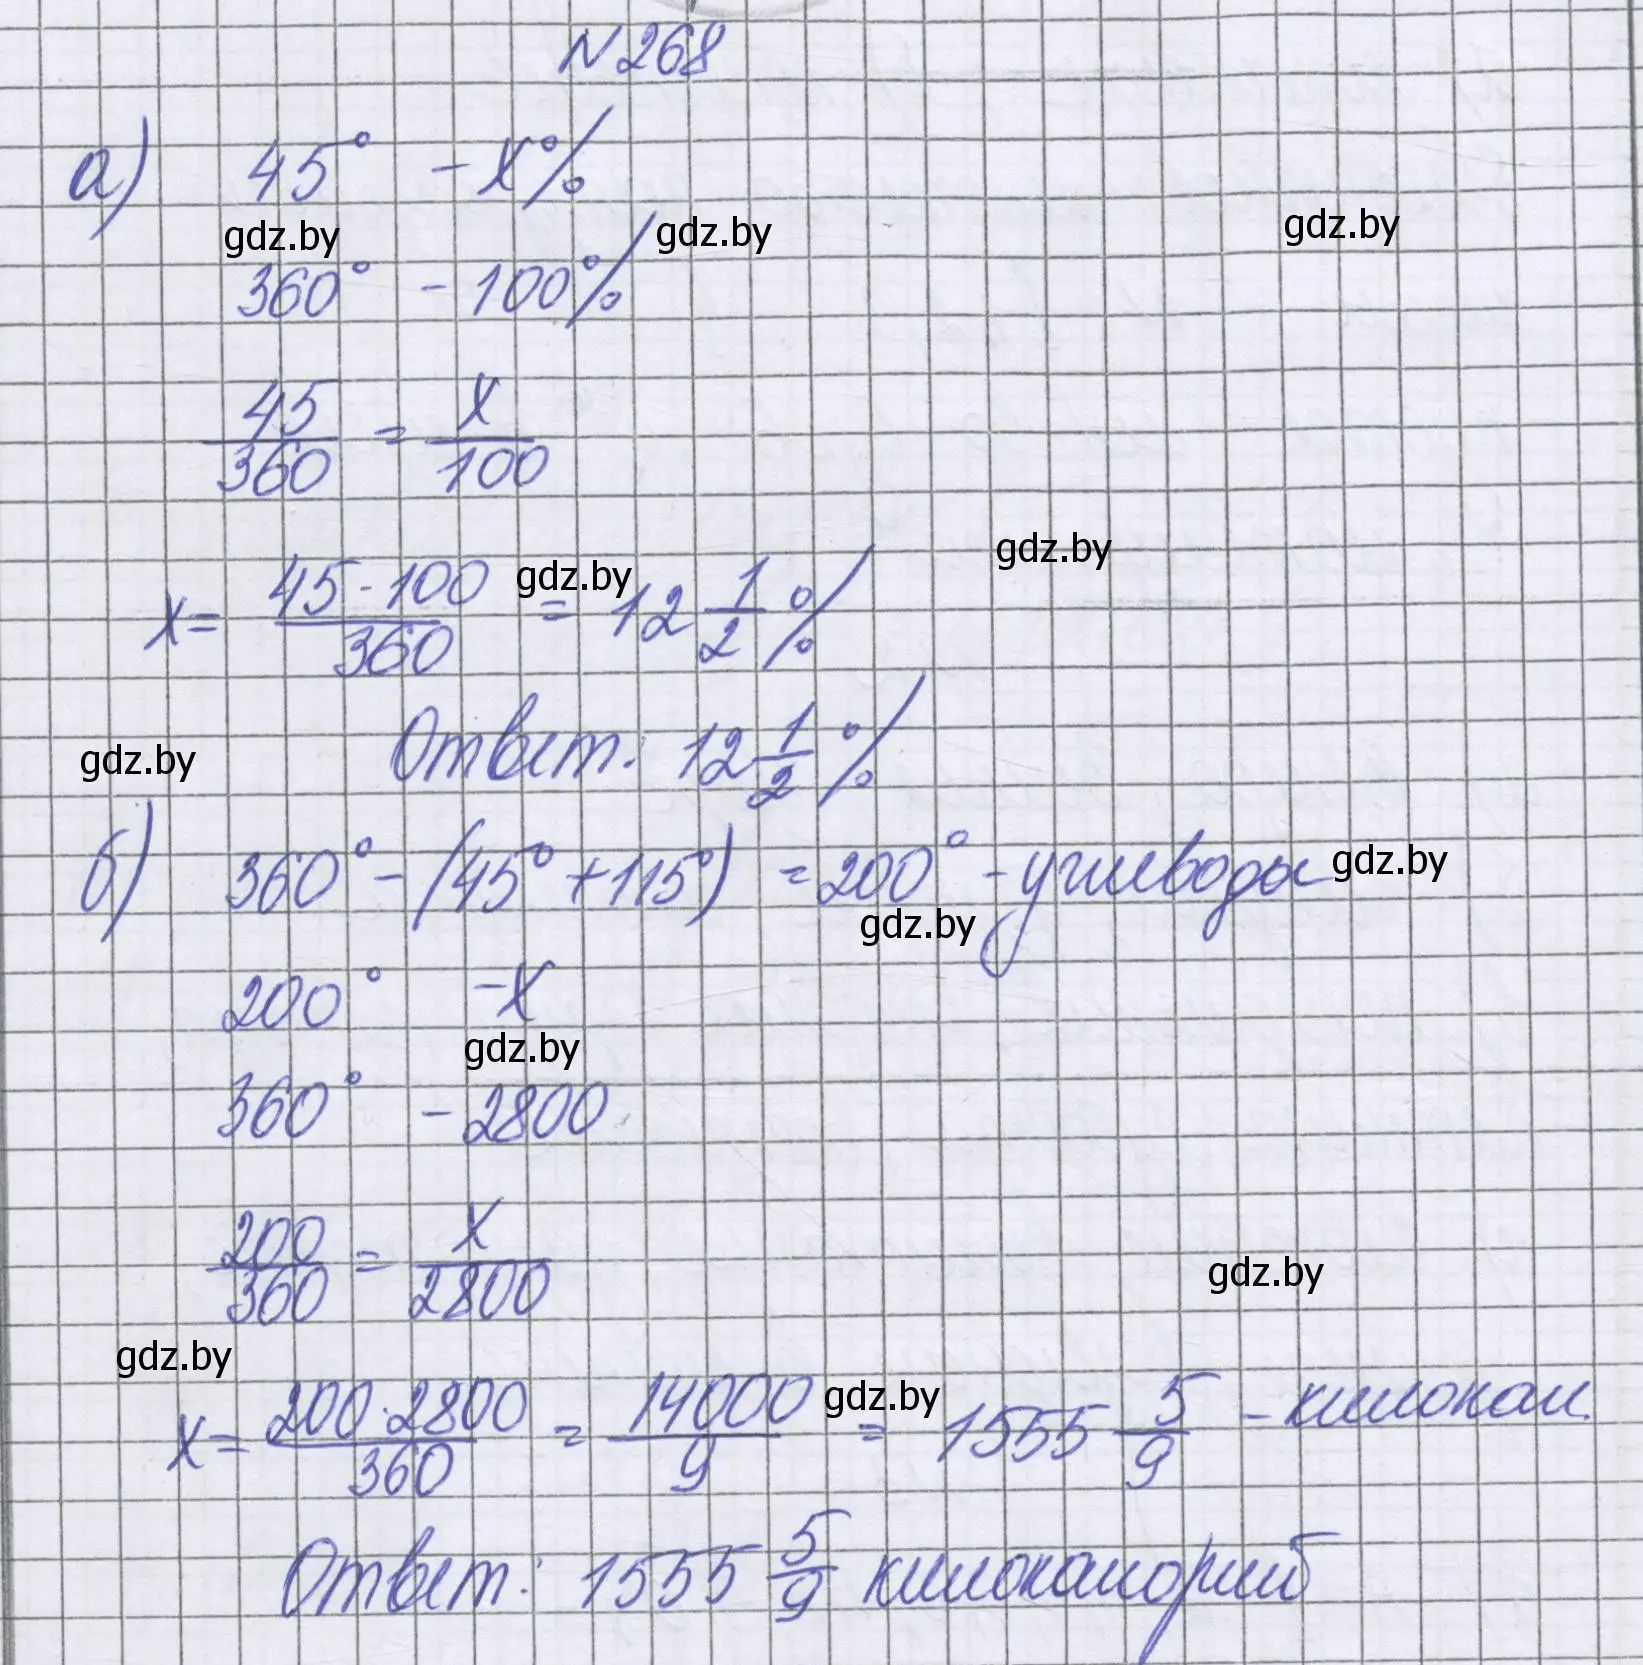 N268
а) 45° - x%
gdz.by gdz.by gdz.by
360° - 100%
45/360 = x/100
gdz.by
x = 45·100/360 gdz.by = 12 1/2 %
Ответ: 12 1/2 %
gdz.by
б) 360° - (45° + 115°) = 200° - углеводы gdz.by
gdz.by
200° - x
gdz.by
360° - 2800
200/360 = x/2800
gdz.by
gdz.by
x = 200·2800/360 = 14000/9 gdz.by = 1555 5/9 - килокал.
Ответ: 1555 5/9 килокалорий